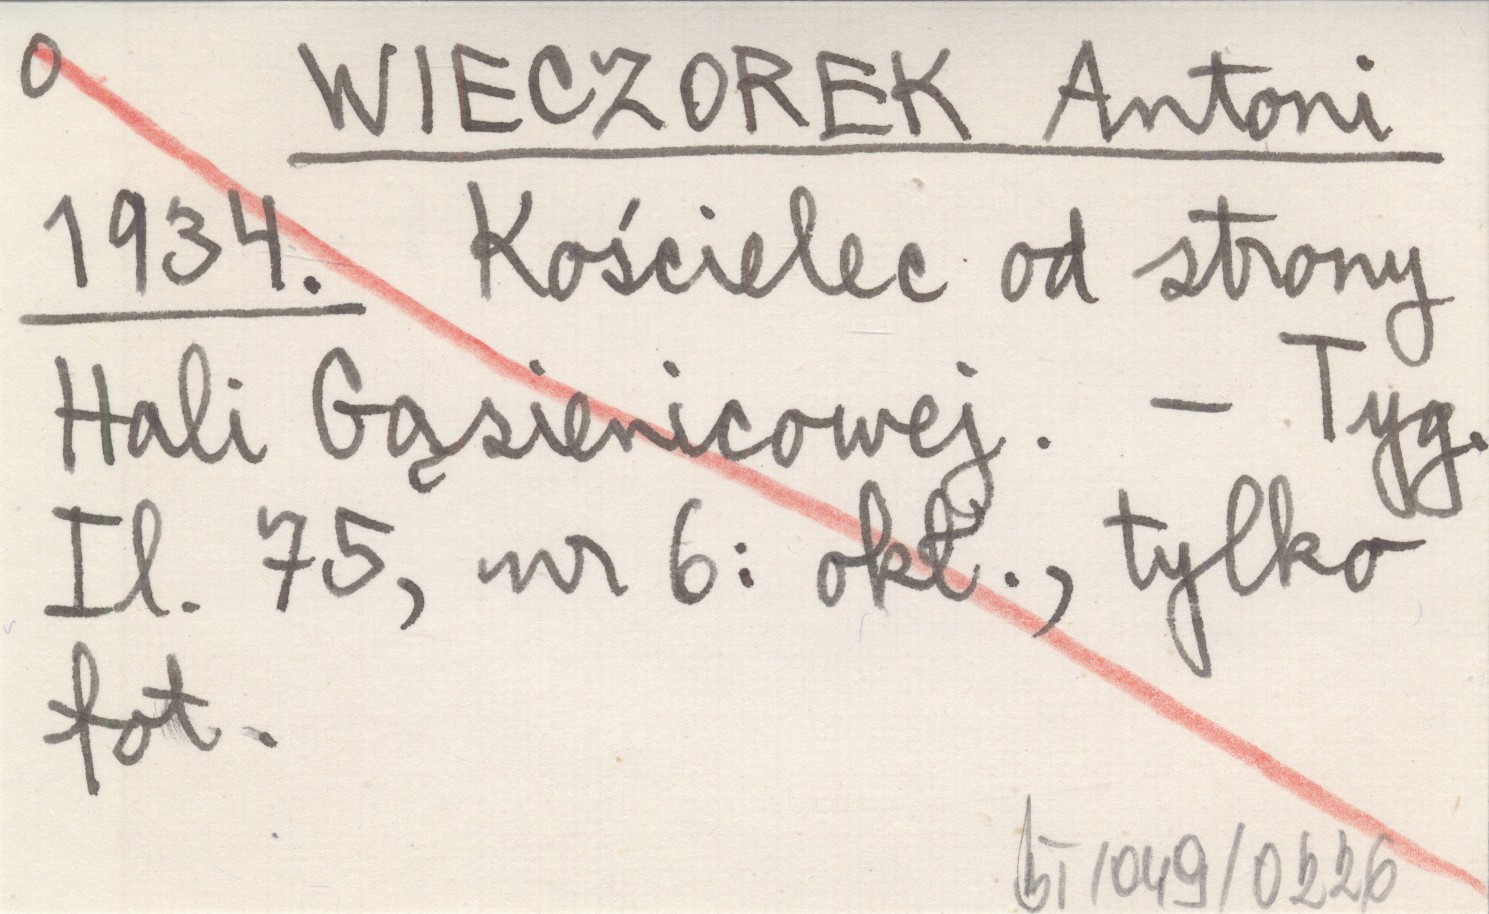 0 WIECZOREK Antoni
1934. Kościelec od strony
Hali Gąsienicowej. – Tyg.
Il. 75, nr 6: okł., tylko
fot.
/049/0226